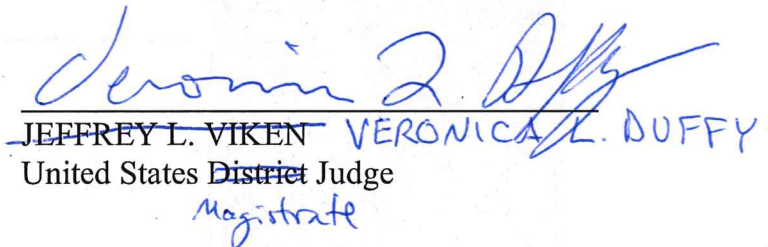 Veronica L. Duffy
JEFFREY L. VIKEN VERONICA L. DUFFY
United States District Judge
Magistrate